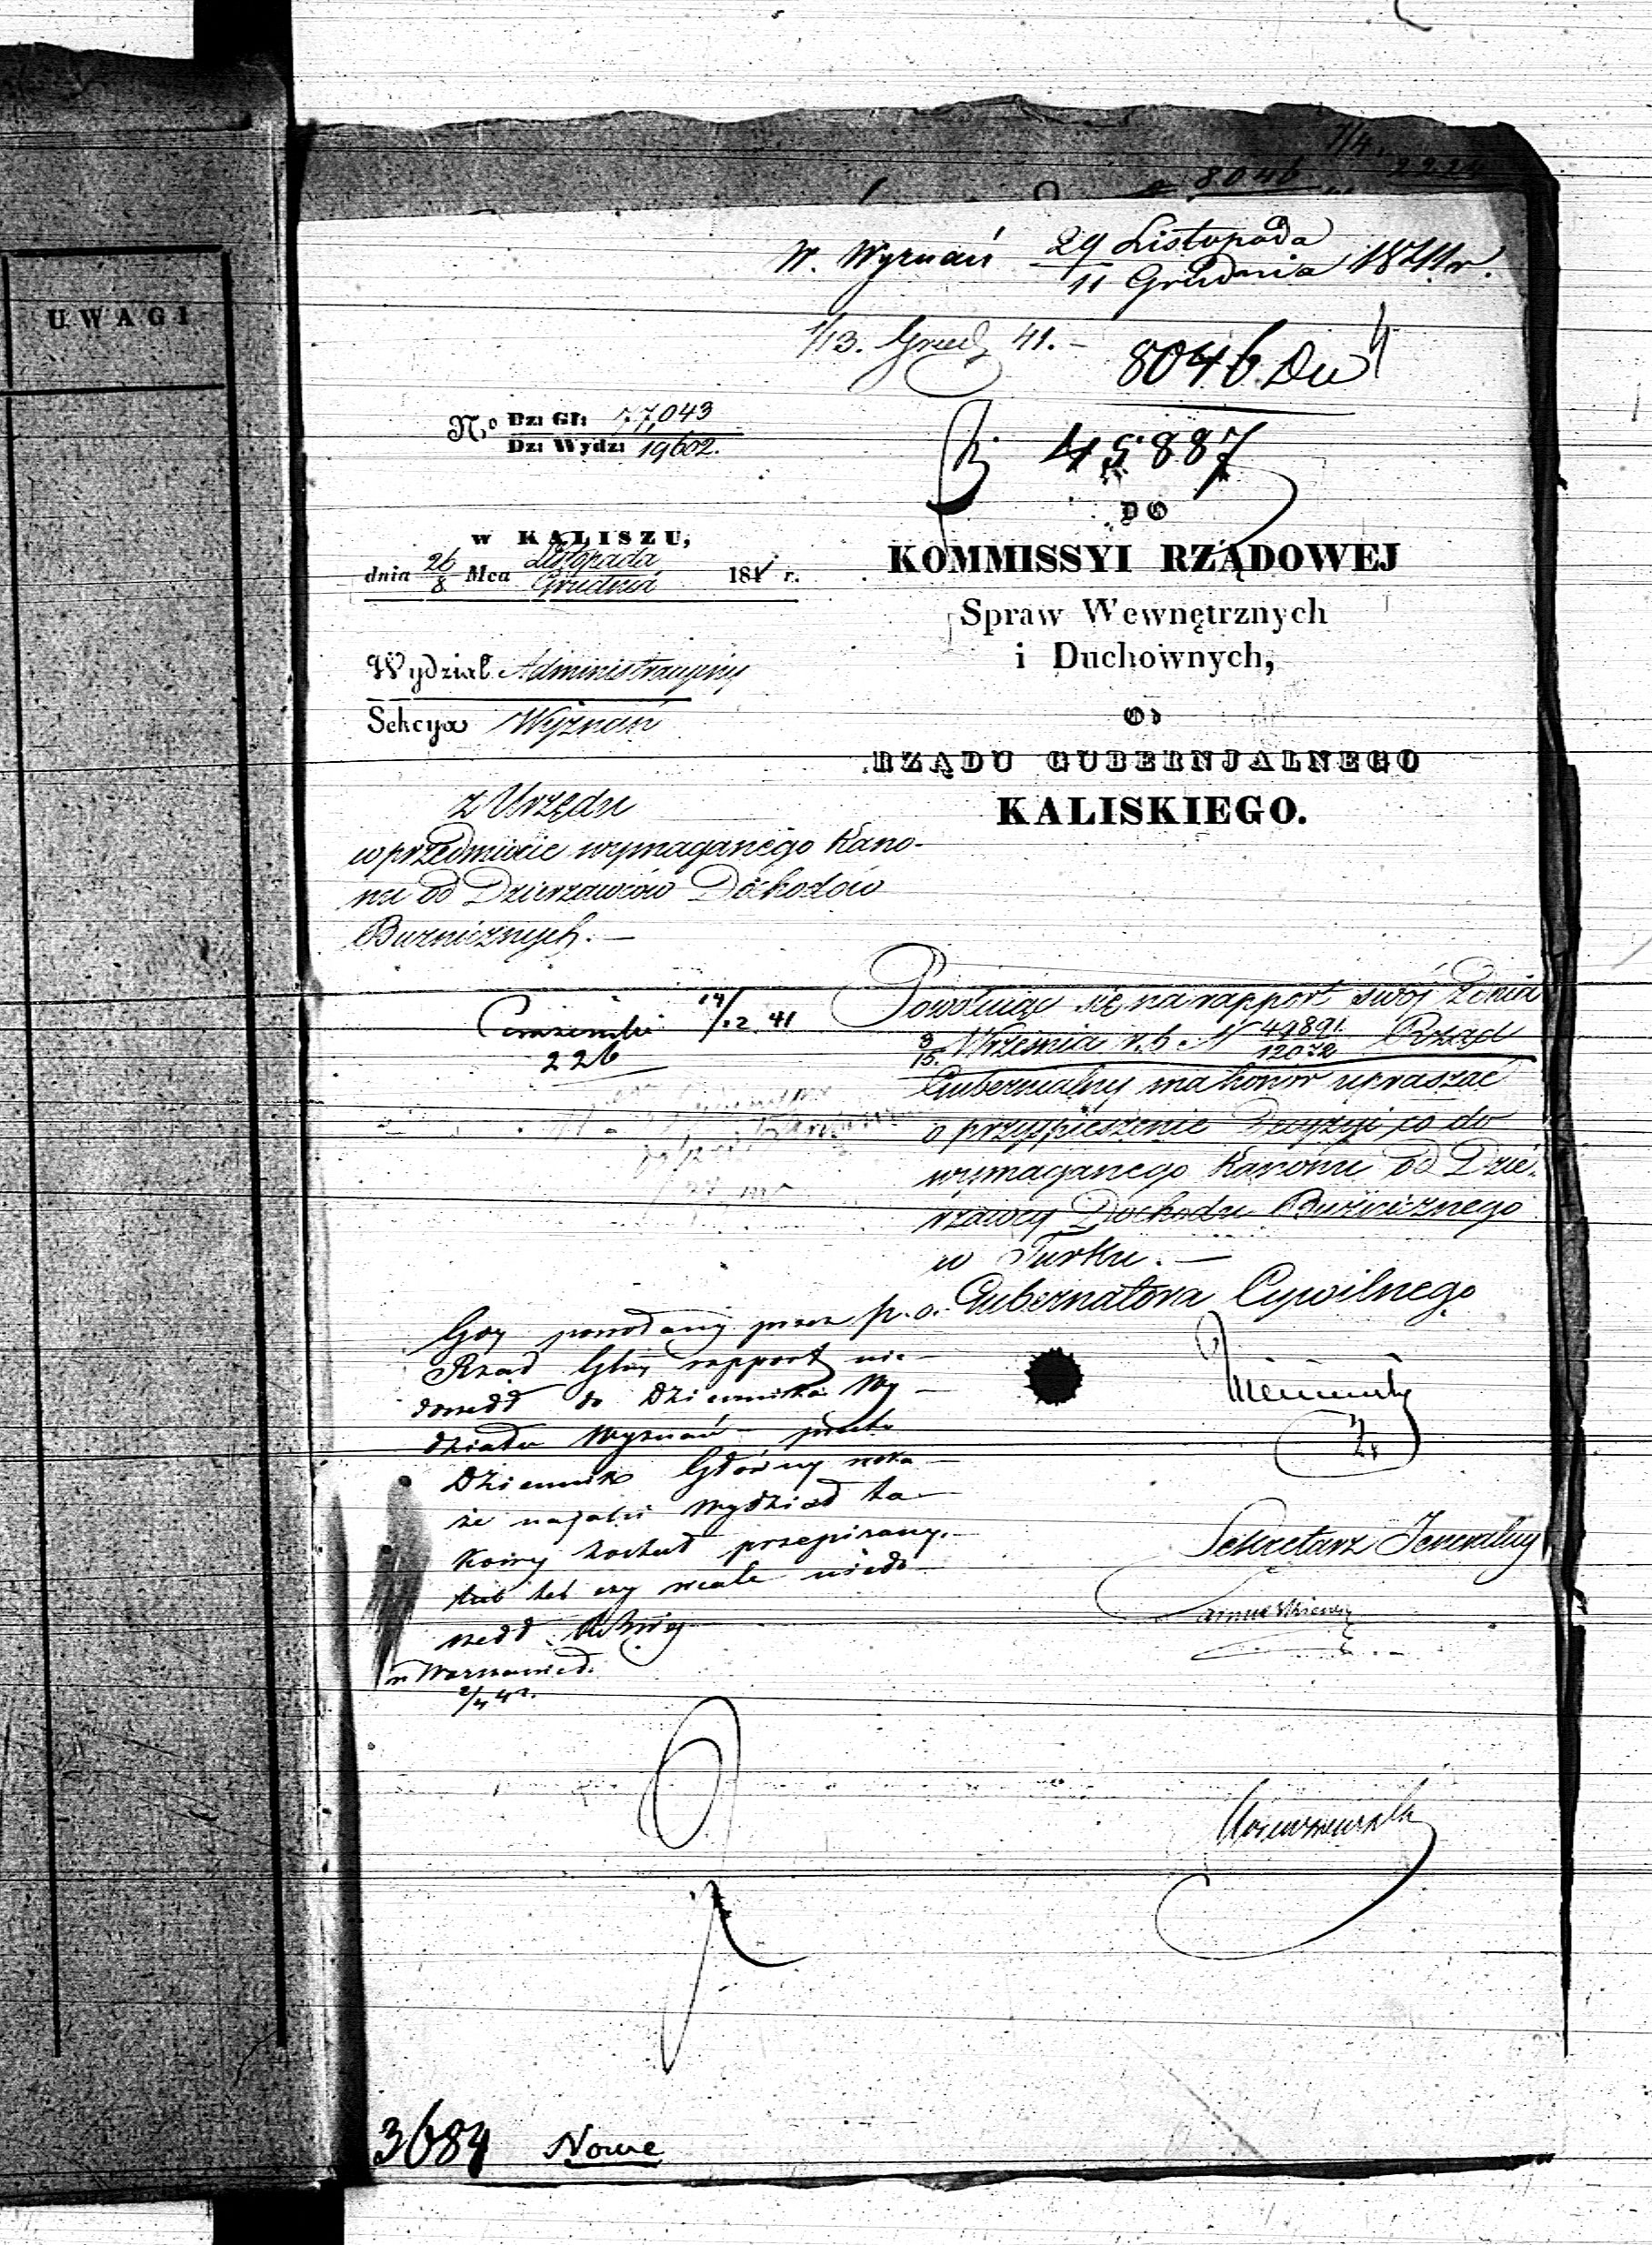 UWAGI
8046
W. Wyznań 29 Listopada
11 Grudnia 1841 r.
1/13. Grud 41.-
8046 Du
45887
No Dz: Gł: 77,043
Dz: Wydz: 19602.
DO
w KALISZU,
KOMMISSYI RZĄDOWEJ
dnia 26/8 Mca Listopada
Grudnia 1841 r.
Spraw Wewnętrznych
i Duchownych,
Wydział Administracyjny
Sekcya Wyznań
OD
RZĄDU GUBERNJALNEGO
KALISKIEGO.
z Urzędu
w przedmiocie wymaganego Kano-
nu od Dzierzawców Dochodów
Bużnicznych.-
Powołuiąc się na rapport swój z dnia
3/15. Września r. b. N 49891/12072 Rząd
Gubernialny ma honor upraszać
o przyspieszenie Decyzyi, co do
wymaganego Kanonu od Dzie-
rzawcy Dochodu Bużnicznego
w Turku.-
14/12 41
226
p. o. Gubernatora Cywilnego
Gdy powołany przez
Rząd Głny rapport nie-
doszedł do Dziennika Wy-
działu Wyznań - przeto
Dziennik Główny
że na jaki Wydział ta-
kowy został przepisany.
lub też czy wcale niedo-
szedł
w Warszawie d.
Sekretarz Jeneralny
3684 Nowe